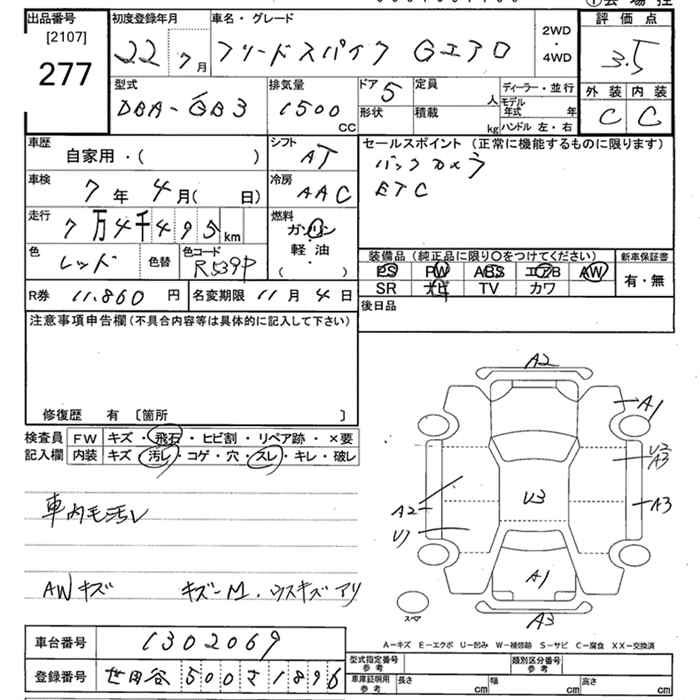 出品番号 [2107] 277
初度登録年月 22年 7月
車名・グレード フリードスパイク Gエアロ
2WD・4WD
評価点 3.5
外装 C 内装 C
型式 DBA-GB3
排気量 1500 CC
ドア 5
形状
定員 人
積載 kg
ディーラー・並行
モデル年式 年
ハンドル 左・右
車歴 自家用・( )
シフト AT
セールスポイント(正常に機能するものに限ります)
バックカメラ
ETC
車検 7年 4月( 日)
冷房 AAC
走行 7万4千495km
燃料 ガソリン 軽油 ( )
色 レッド 色替 色コード R539P
装備品(純正品に限り〇をつけてください)
PS PW ABS エアB AW
SR ナビ TV カワ
新車保証書 有・無
R券 11.860円 名変期限 11月 4日
後日品
注意事項申告欄(不具合内容等は具体的に記入して下さい)
修復歴 有 〔箇所 〕
検査員 FW キズ・飛石・ヒビ割・リペア跡・×要
記入欄 内装 キズ・汚レ・コゲ・穴・スレ・キレ・破レ
車内毛汚レ
AWキズ キズ-M.ウスキズアリ
A2
A1
U2
A3
A3
A2
U1
U3
A1
A3
スペア
A-キズ E-エクボ U-凹み W-補修跡 S-サビ C-腐食 XX-交換済
車台番号 1302069
登録番号 世田谷 500 さ 1896
型式指定番号 参考
類別区分番号 参考
車庫証明用 参考 長さ cm 幅 cm 高さ cm